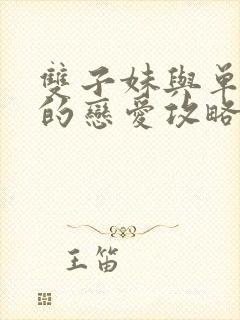 雙子妹與單
的戀愛攻略
王笛